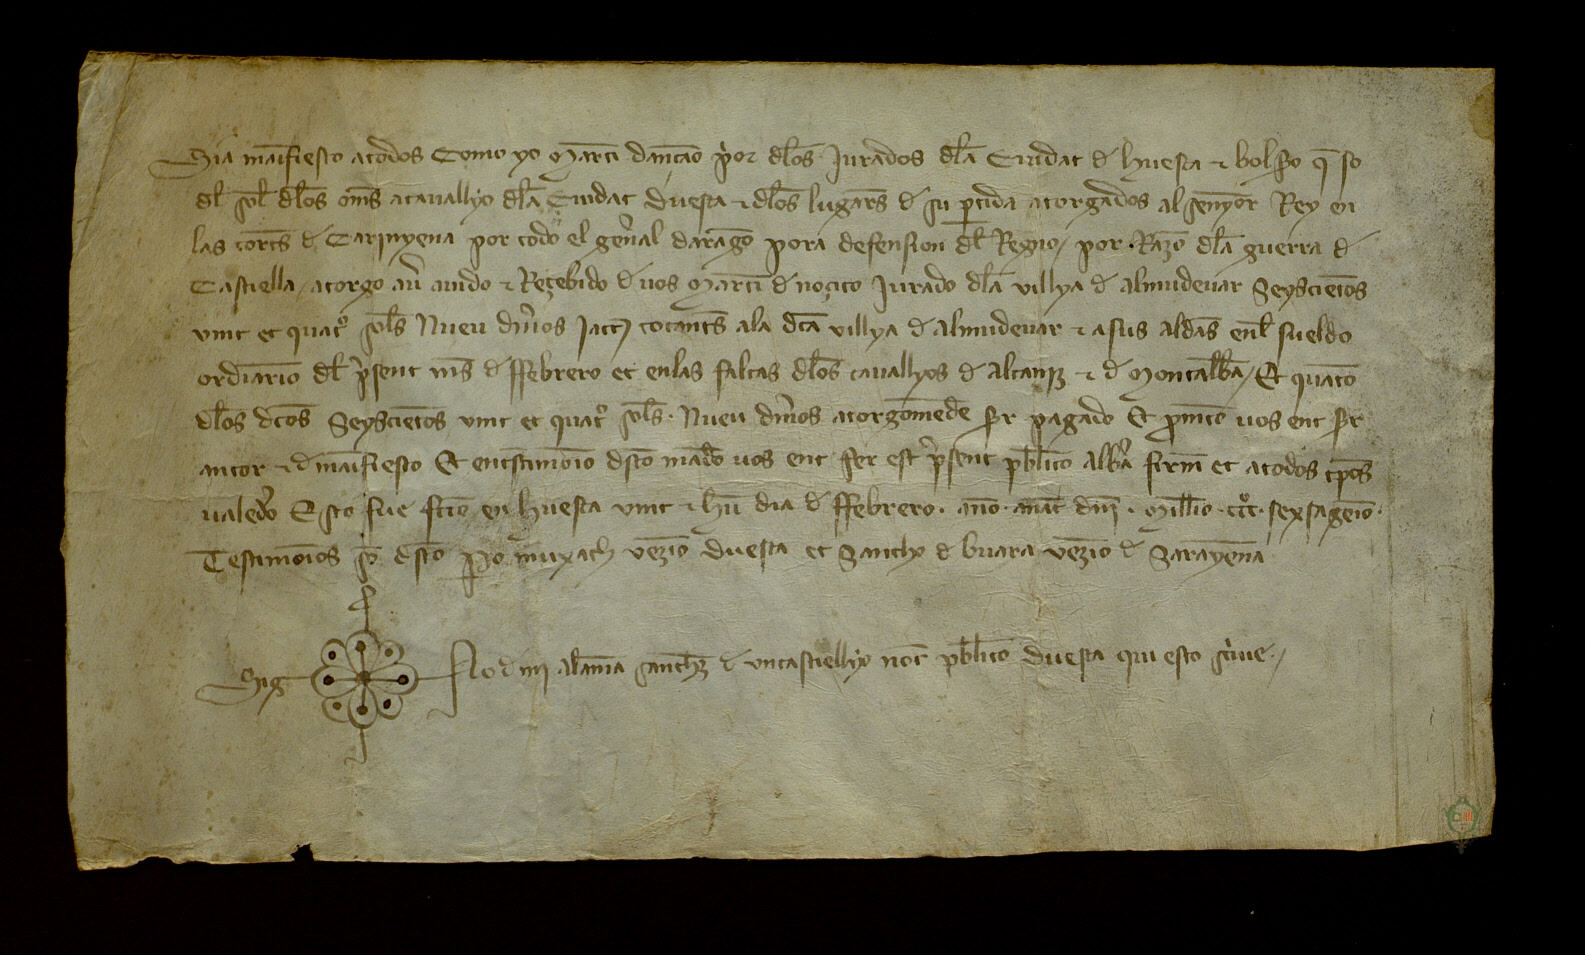 Sia manifiesto a todos Como yo Martī dantā p̄or dlos Jurados dla Ciudat d huesca ⁊ bolsso q̄ so
dl sol dlos om̄s a cauallyo dla Ciudat duesca ⁊ dlos lugars d su p̄tida atorgados al senyor Rey en
las corts d Carinyena por todo el gen̄al daragō pora defension dl Regno / por Razō dla guerra d
Castiella / atorgo au̓ auido ⁊ Reçebido d uos Martī d noçito Jurado dla villya d almudeuar Seysciētos
vint et quatͦ sols Nueu dn̄os Jacc̄ tocants ala dc̄a villya d almudeuar ⁊ a sus aldās enl sueldo
ordinario dl p̄sent ms d ffebrero et en las faltas dlos cauallyos d alcanyz ⁊ d montalbā / Et quāto
dlos dc̄os Seysciētos vint et quatͦ sols Nueu dn̄os atorgomēde sr pagado Et p̄meto uos ent sr
auctor ⁊ d manifiesto Et en testimonio dsto mādo uos ent fer est p̄sent pb̄lico albarā firm et a todos tp̄os
ualedo Esto fue fc̄to en huesca vint ⁊ hū dia d ffebrero · ano · a nat̄ dn̄i · Mill̄io · ccc͏ͦ · sexsagēo ·
Testimonios so dsto po muxach vezīo duesca et Sancho d buara vezīo d Sarayēna
Sig No d mi alamā sanchz d uncastiellyo not pb̄lico duesca qui esto sc̄iue /